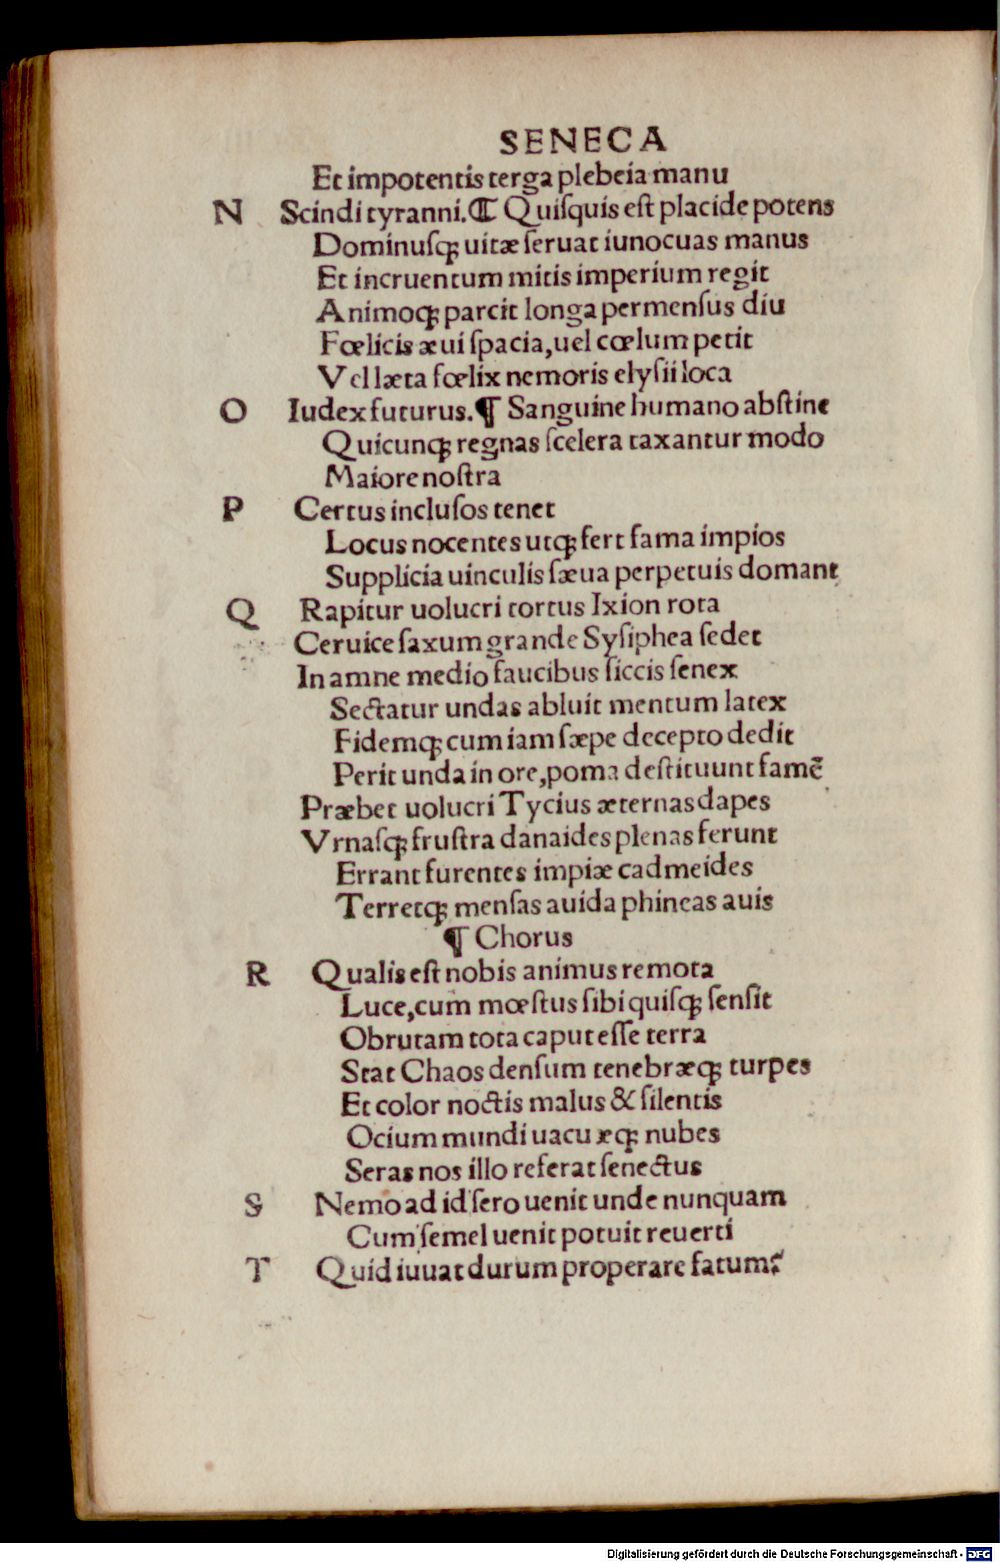 SENECA
Et impotentis terga plebeia manu
N Scindi tyranni.¶ Quiſquis eſt placide potens
Dominuſqꝫ uitæ ſeruat iunocuas manus
Et incruentum mitis imperium regit
Animoqꝫ parcit longa permenſus diu
Fœlicis æui ſpacia,uel cœlum petit
Vel læta fœlix nemoris elyſii loca
O Iudex futurus.¶ Sanguine humano abſtine
Quicunqꝫ regnas ſcelera taxantur modo
Maiore noſtra
P Certus incluſos tenet
Locus nocentes utqꝫ fert fama impios
Supplicia uinculis ſæua perpetuis domant
Q Rapitur uolucri tortus Ixion rota
Ceruice ſaxum grande Syſiphea ſedet
In amne medio faucibus ſiccis ſenex
Sectatur undas abluit mentum latex
Fidemqꝫ cum iam ſæpe decepto dedit
Perit unda in ore,poma deſtituunt famē
Præbet uolucri Tycius æternas dapes
Vrnaſqꝫ fruſtra danaides plenas ferunt
Errant furentes impiæ cadmeides
Terretqꝫ menſas auida phineas auis
¶ Chorus
R Qualis eſt nobis animus remota
Luce,cum mœſtus ſibi quiſqꝫ ſenſit
Obrutam tota caput eſſe terra
Stat Chaos denſum tenebræqꝫ turpes
Et color noctis malus & ſilentis
Ocium mundi uacuæqꝫ nubes
Seras nos illo referat ſenectus
S Nemo ad id ſero uenit unde nunquam
Cum ſemel uenit potuit reuerti
T Quid iuuat durum properare fatum?
Digitalisierung gefördert durch die Deutsche Forschungsgemeinschaft - DFG